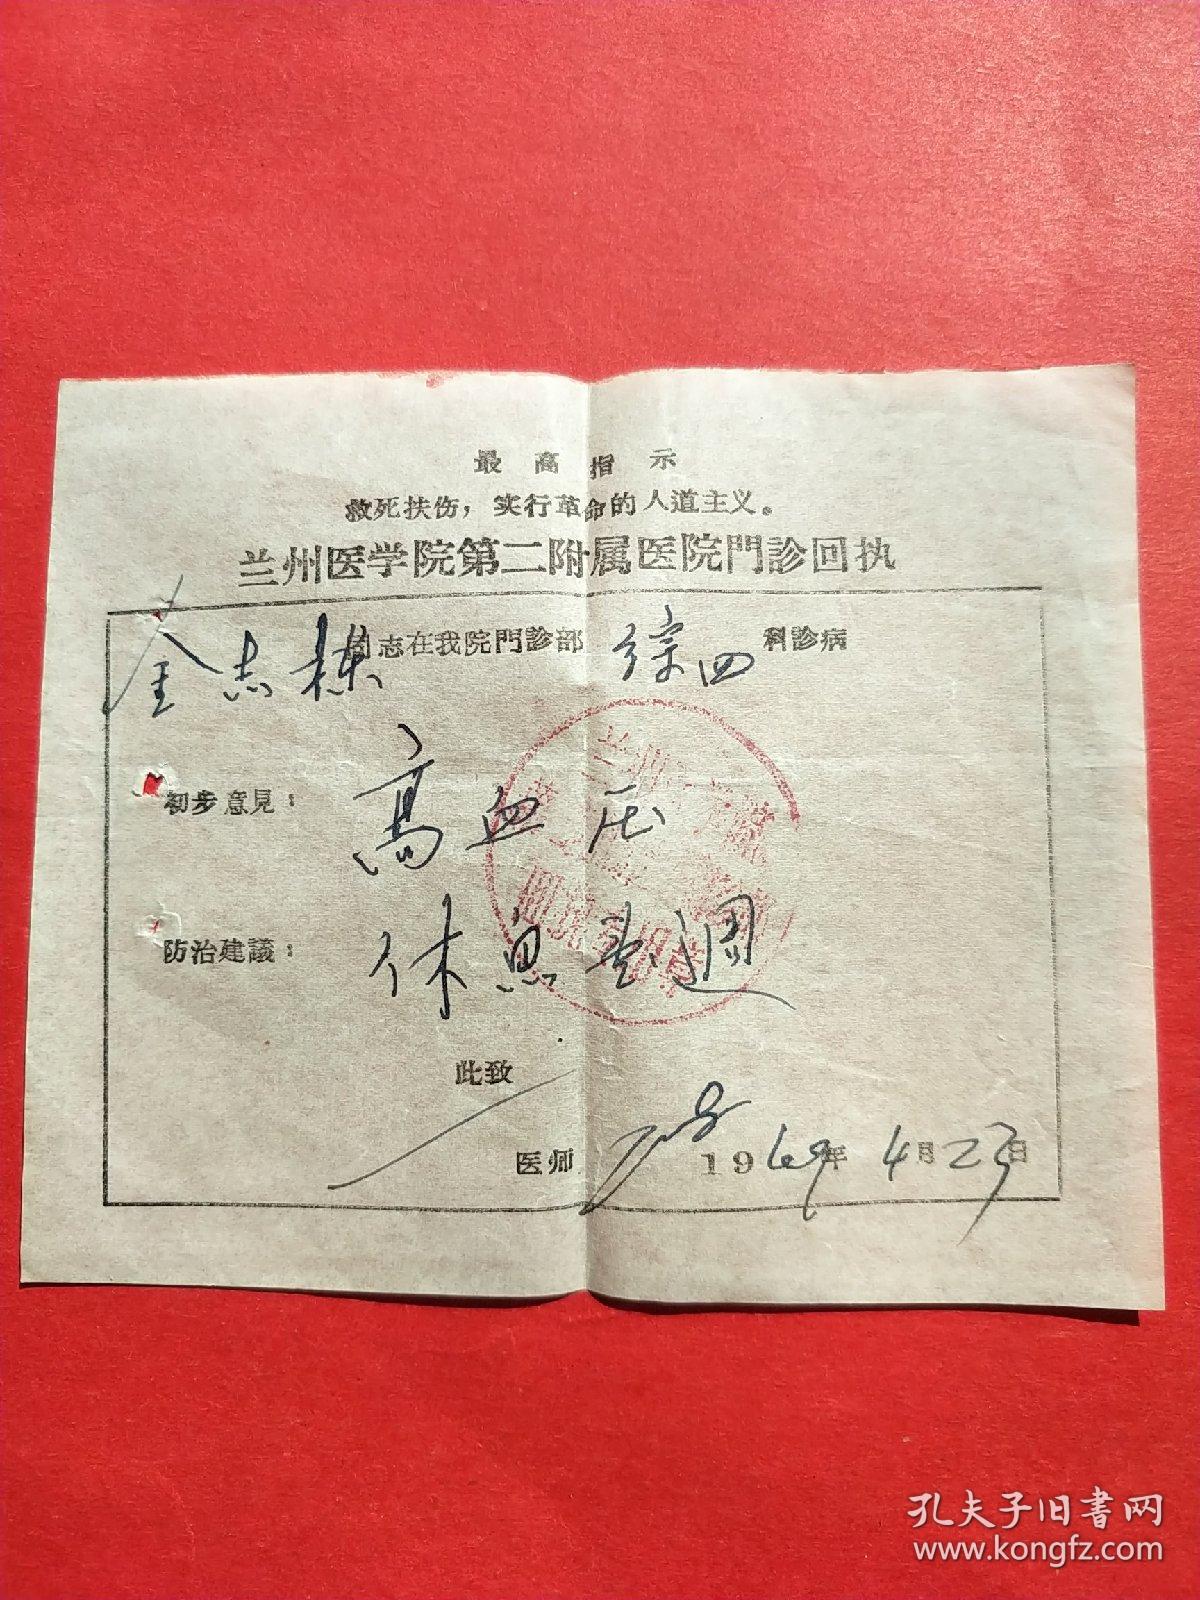 最高指示
救死扶伤，实行革命的人道主义。
兰州医学院第二附属医院門診回执
金志栋同志在我院門診部 综四 科診病
初步意見： 高血压
防治建議： 休息壹週
此致
医师 1969年4月23日
孔夫子旧书网
www.kongfz.com